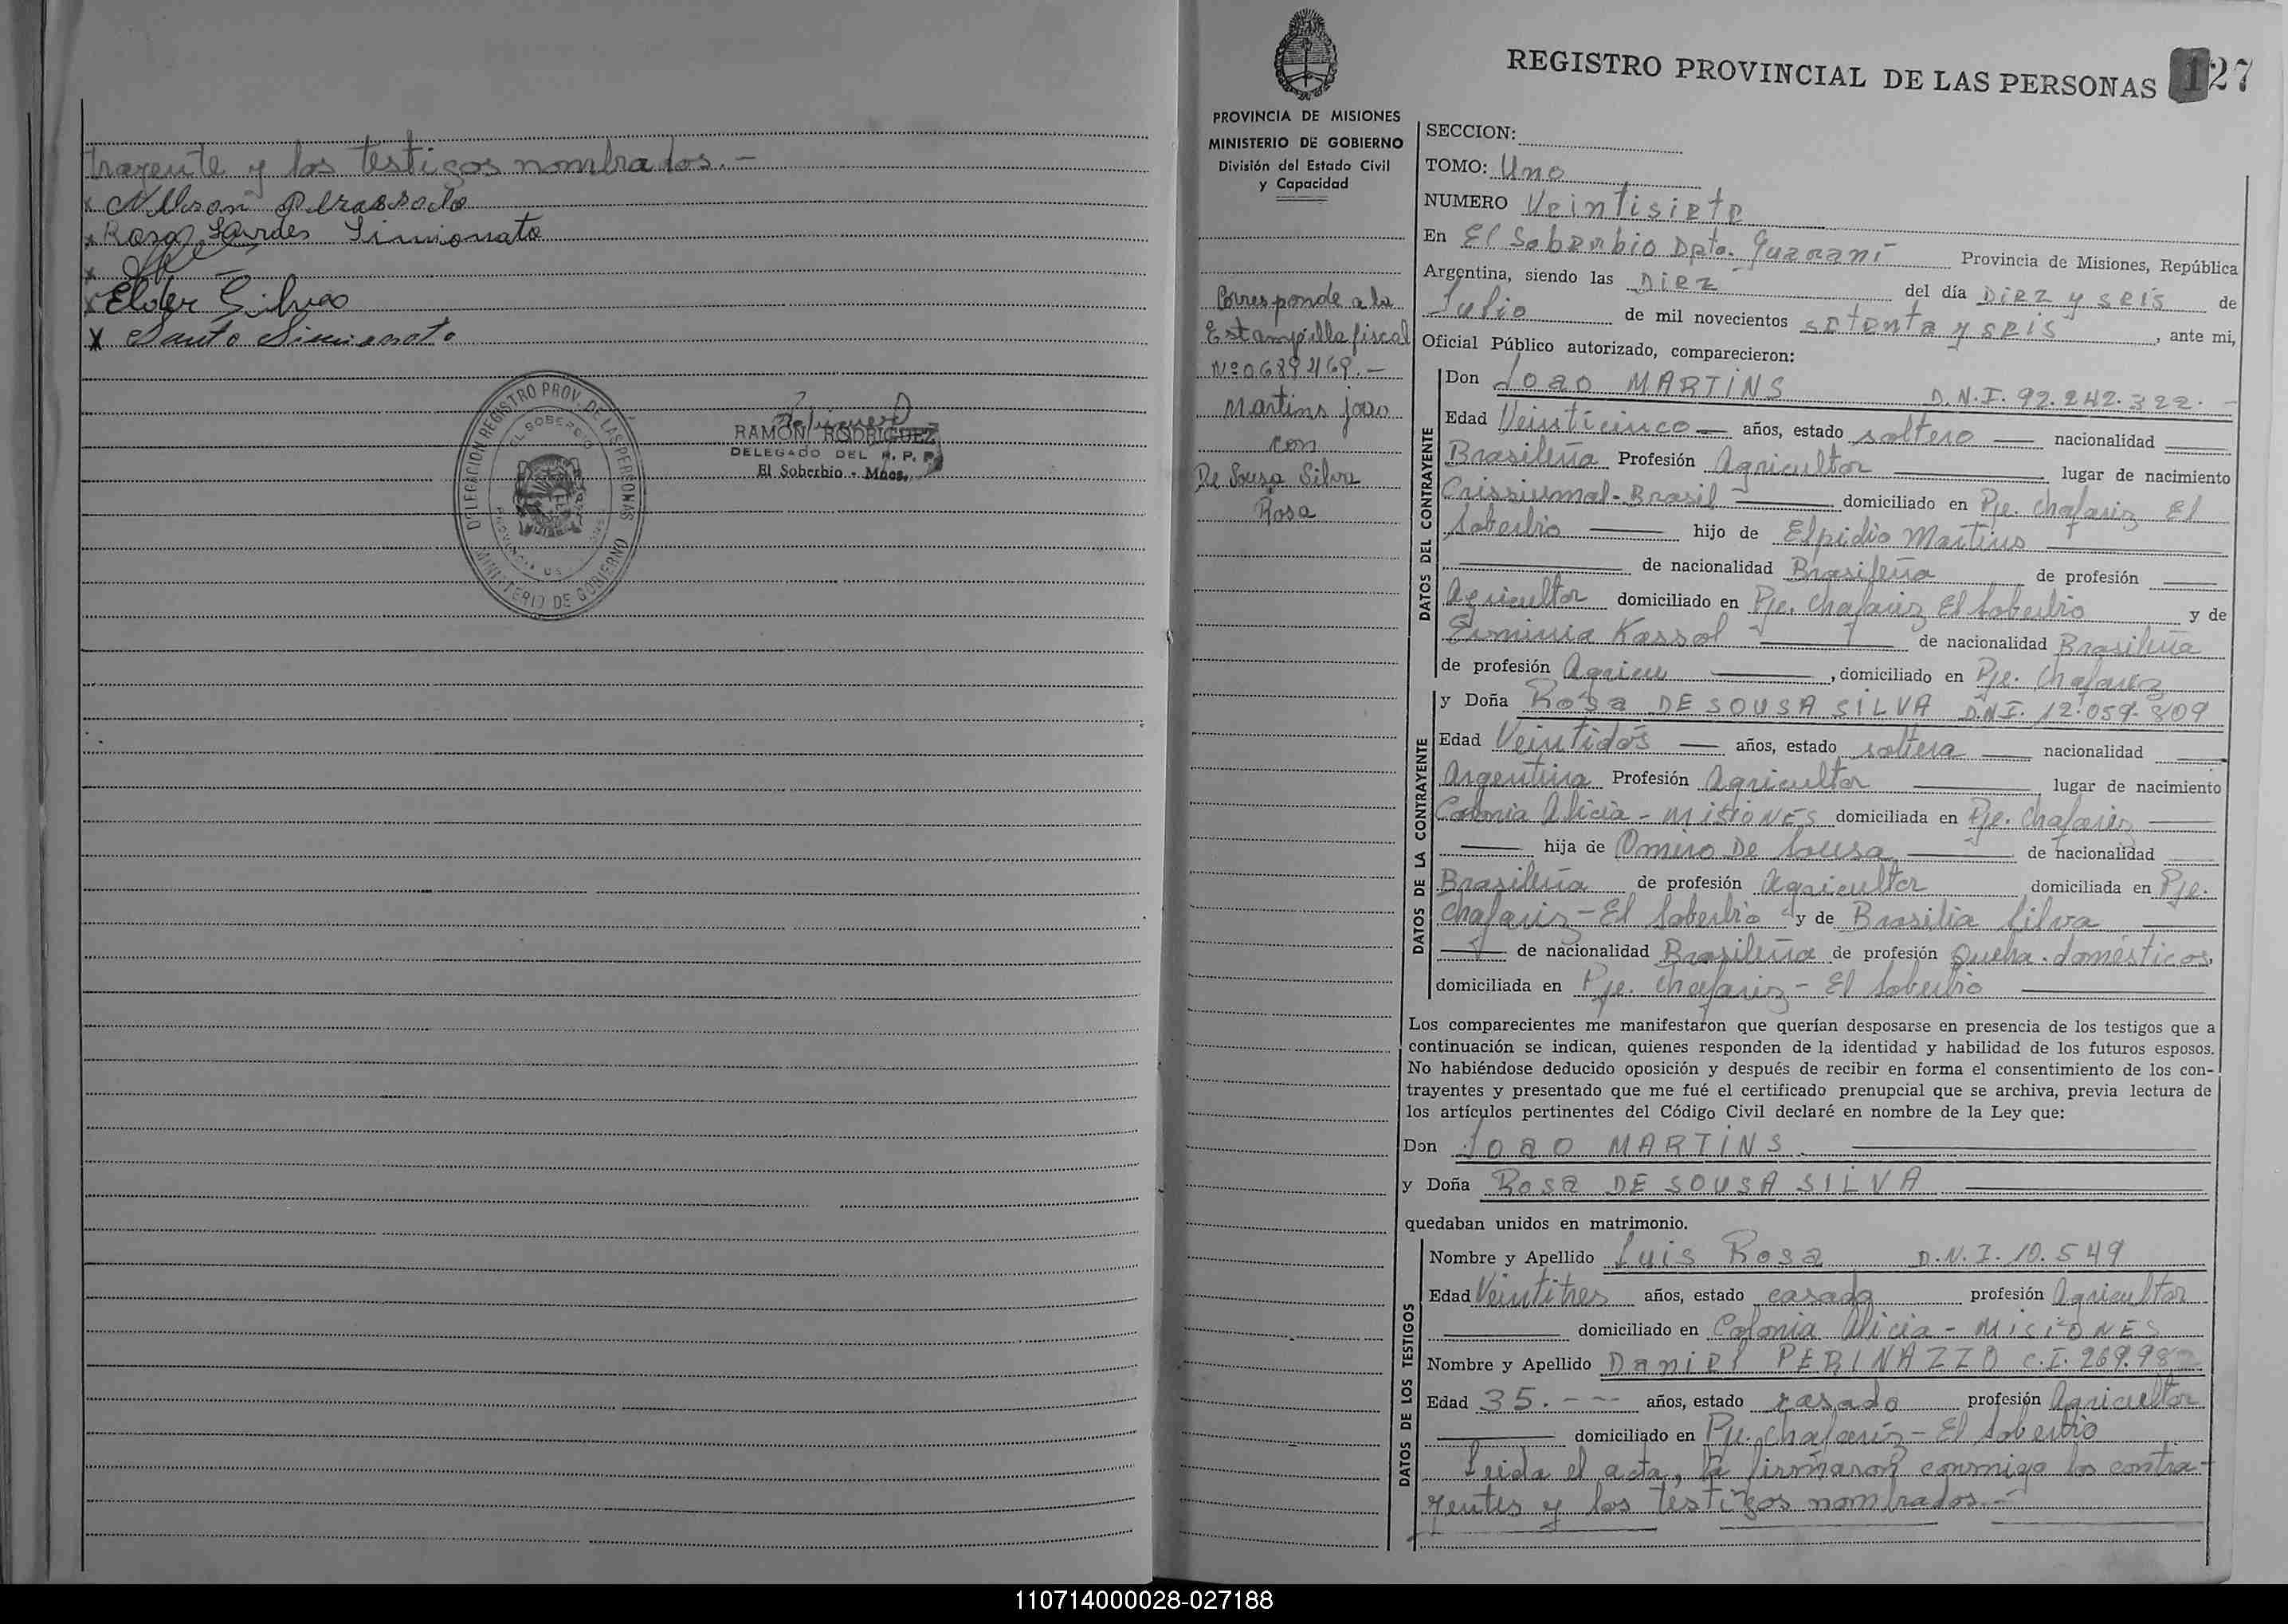 trayente y los testigos nombrados.-
x
x Rosa Lourdes Simionato
x
x Elder Silva
X Santo Simionato
DELEGACION REGISTRO PROV. DE LAS PERSONAS
EL SOBERBIO
MINISTERIO DE GOBIERNO
RAMON RODRIGUEZ
DELEGADO DEL R. P. P.
El Soberbio - Mnes.
REGISTRO PROVINCIAL DE LAS PERSONAS 127
PROVINCIA DE MISIONES
MINISTERIO DE GOBIERNO
División del Estado Civil
y Capacidad
Corresponde a la
Estampilla fiscal
Martins joao
con
De Sousa Silva
Rosa
SECCION:
TOMO: Uno
NUMERO Veintisiete
En El Soberbio Dpto. Guaraní Provincia de Misiones, República
Argentina, siendo las Diez del día Diez y seis de
Julio de mil novecientos setenta y seis, ante mi,
Oficial Público autorizado, comparecieron:
DATOS DEL CONTRAYENTE
Don Joao MARTINS D.N.I. 92.242.322.-
Edad Veinticinco — años, estado soltero — nacionalidad
Brasileña Profesión Agricultor lugar de nacimiento
Crissiumal-Brasil domiciliado en Pje. Chafariz El
Soberbio hijo de Elpidio Martins
de nacionalidad Brasileña de profesión
Agricultor domiciliado en Pje. Chafariz El Soberbio y de
Kassol de nacionalidad Brasileña
de profesión Agricu , domiciliado en Pje. Chafariz
DATOS DE LA CONTRAYENTE
y Doña Rosa DE SOUSA SILVA D.N.I. 12.059.809
Edad Veintidós — años, estado soltera — nacionalidad
Argentina Profesión Agricultor lugar de nacimiento
Colonia Alicia - MISIONES domiciliada en Pje. Chafariz
hija de Omiro De Sousa de nacionalidad
Brasileña de profesión Agricultor domiciliada en Pje.
Chafariz - El Soberbio y de Brasilia Silva
de nacionalidad Brasileña de profesión Queha. domésticos,
domiciliada en Pje. Chafariz - El Soberbio
Los comparecientes me manifestaron que querían desposarse en presencia de los testigos que a
continuación se indican, quienes responden de la identidad y habilidad de los futuros esposos.
No habiéndose deducido oposición y después de recibir en forma el consentimiento de los con-
trayentes y presentado que me fué el certificado prenupcial que se archiva, previa lectura de
los artículos pertinentes del Código Civil declaré en nombre de la Ley que:
Don Joao MARTINS
y Doña Rosa DE SOUSA SILVA
quedaban unidos en matrimonio.
DATOS DE LOS TESTIGOS
Nombre y Apellido Luis Rosa D.N.I. 10.549
Edad Veintitres años, estado casado profesión Agricultor
domiciliado en Colonia Alicia - MISIONES
Nombre y Apellido Daniel PERINAZZO C.I.
Edad 35.--- años, estado casado profesión Agricultor
domiciliado en Pje. Chafariz - El Soberbio
Leida el acta, la firmaron conmigo los contra-
yentes y los testigos nombrados.-
110714000028-027188